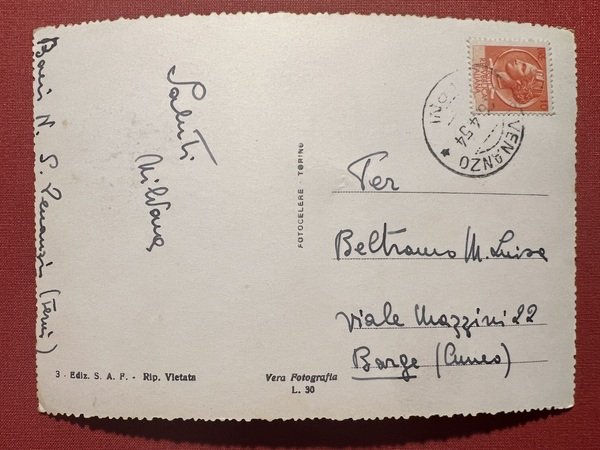 Boris N. S. Venanzio (Terni)
Saluti
Milvana
FOTOCELERE TORINO
3 - Ediz. S. A. F. - Rip. Vietata
Vera Fotografia
L. 30
VENANZO
4 54
Ter
Beltramo M. Luisa
viale Mazzini 22
Barge (Cuneo)